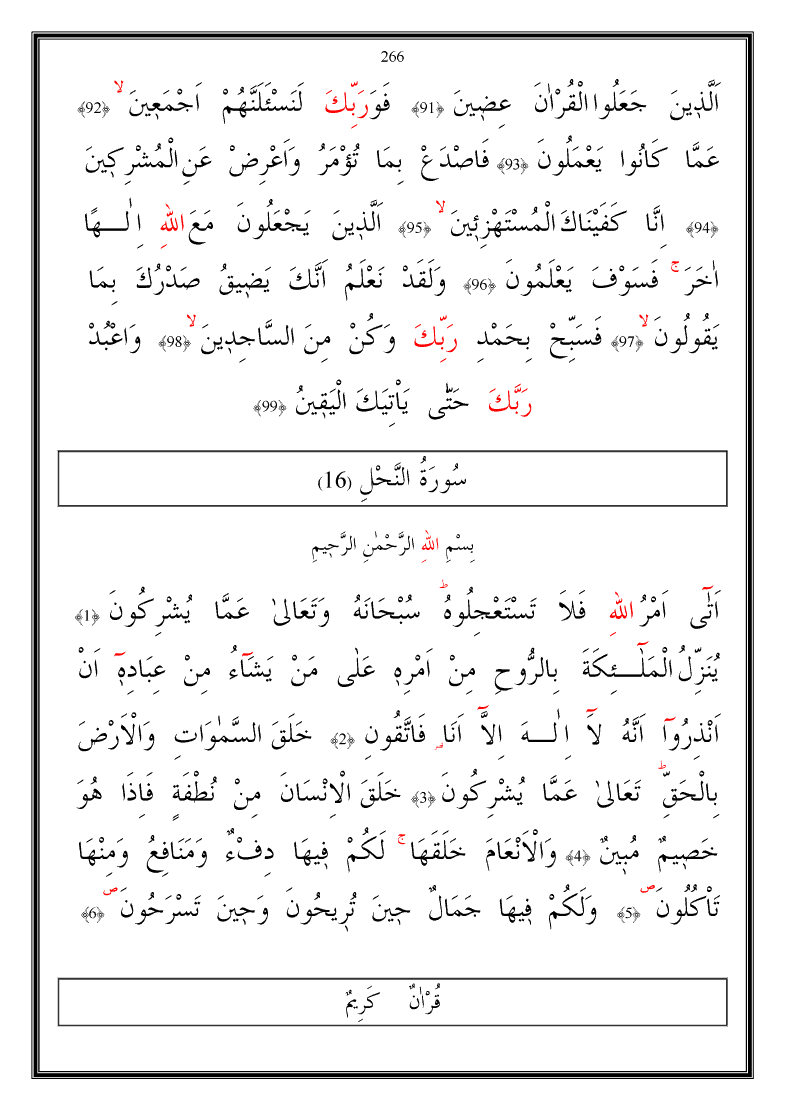 266
اَلَّذ۪ينَ جَعَلُوا الْقُرْاٰنَ عِض۪ينَ ﴿91﴾ فَوَرَبِّكَ لَنَسْـَٔلَنَّهُمْ اَجْمَع۪ينَۙ ﴿92﴾
عَمَّا كَانُوا يَعْمَلُونَ ﴿93﴾ فَاصْدَعْ بِمَا تُؤْمَرُ وَاَعْرِضْ عَنِ الْمُشْرِك۪ينَ
﴿94﴾ اِنَّا كَفَيْنَاكَ الْمُسْتَهْزِئ۪ينَۙ ﴿95﴾ اَلَّذ۪ينَ يَجْعَلُونَ مَعَ اللهِ اِلٰـــهًا
اٰخَرَۚ فَسَوْفَ يَعْلَمُونَ ﴿96﴾ وَلَقَدْ نَعْلَمُ اَنَّكَ يَض۪يقُ صَدْرُكَ بِمَا
يَقُولُونَۙ ﴿97﴾ فَسَبِّحْ بِحَمْدِ رَبِّكَ وَكُنْ مِنَ السَّاجِد۪ينَۙ ﴿98﴾ وَاعْبُدْ
رَبَّكَ حَتّٰى يَأْتِيَكَ الْيَق۪ينُ ﴿99﴾
سُورَةُ النَّحْلِ (16)
بِسْمِ اللهِ الرَّحْمٰنِ الرَّح۪يمِ
اَتٰٓى اَمْرُ اللهِ فَلاَ تَسْتَعْجِلُوهُۜ سُبْحَانَهُ وَتَعَالٰى عَمَّا يُشْرِكُونَ ﴿1﴾
يُنَزِّلُ الْمَلٰٓـــئِكَةَ بِالرُّوحِ مِنْ اَمْرِه۪ عَلٰى مَنْ يَشَٓاءُ مِنْ عِبَادِه۪ٓ اَنْ
اَنْذِرُٓوا اَنَّهُ لَٓا اِلٰـــهَ اِلَّٓا اَنَا۬ فَاتَّقُونِ ﴿2﴾ خَلَقَ السَّمٰوَاتِ وَالْاَرْضَ
بِالْحَقِّۜ تَعَالٰى عَمَّا يُشْرِكُونَ ﴿3﴾ خَلَقَ الْاِنْسَانَ مِنْ نُطْفَةٍ فَاِذَا هُوَ
خَص۪يمٌ مُب۪ينٌ ﴿4﴾ وَالْاَنْعَامَ خَلَقَهَاۚ لَكُمْ ف۪يهَا دِفْءٌ وَمَنَافِعُ وَمِنْهَا
تَأْكُلُونَۖ ﴿5﴾ وَلَكُمْ ف۪يهَا جَمَالٌ ح۪ينَ تُر۪يحُونَ وَح۪ينَ تَسْرَحُونَۖ ﴿6﴾
قُرْاٰنٌ كَرِيمٌ